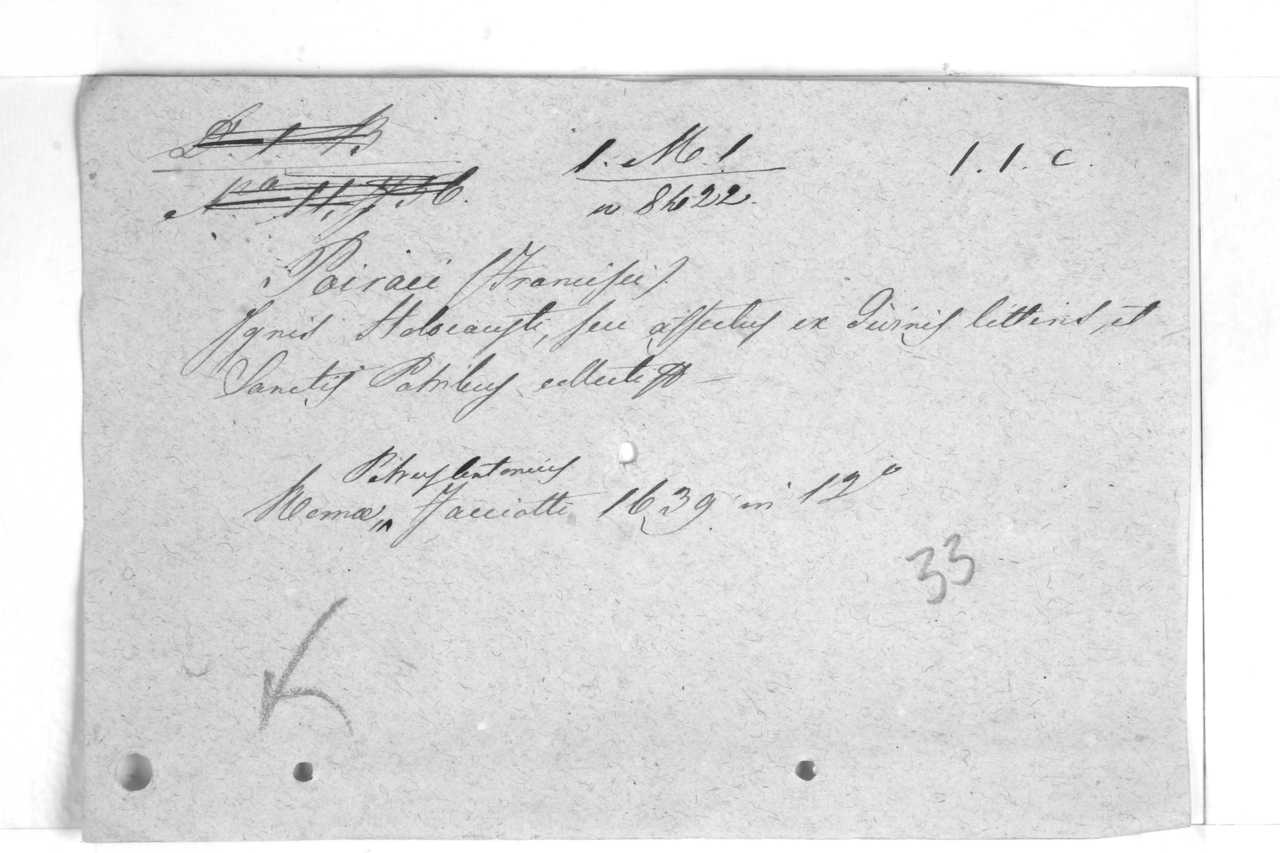 D. 1. B
1. M. 1
1. 1. c.
n 8622.
Poiraei (Francisci)
Ignis Holocausti, seu affectus ex Divinis litteris, et
Sanctis Patribus collecti
Petrus Antonius
Romae, Facciotti 1639 in 12º
33